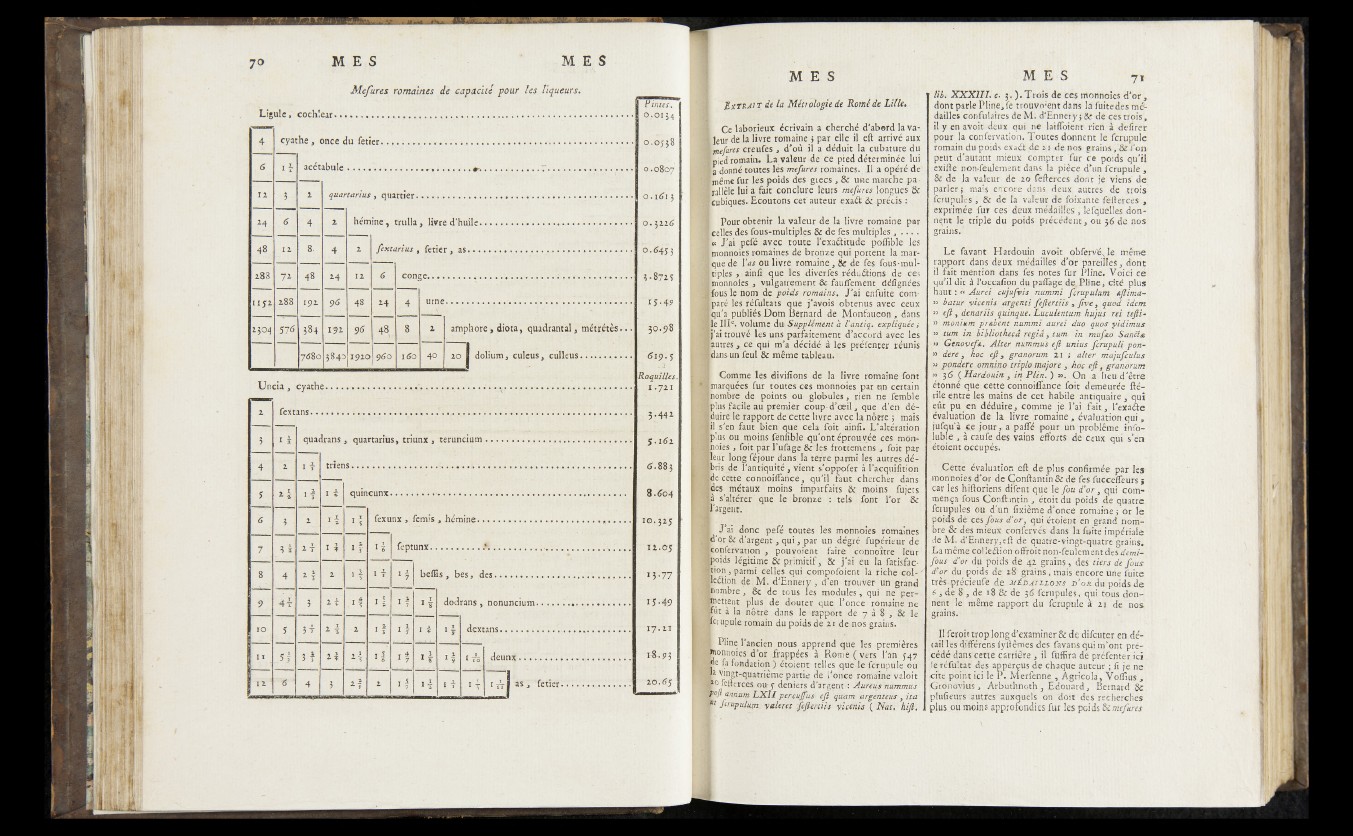 70 MES MES
Mesures romaines de capacité pour les liqueurs.
Pintes.
Ligule, cochlear. 0.0134
4 cyathe, once du setier. 0.0538
6 1 1/2 acétabule 0.0807
12 3 2 quartarius, quartier. 0.1613
24 6 4 2 hémine, trulla, livre d'huile. 0.3226
48 12 8 4 2 sextarius, setier, as. 0.6453
288 72 48 24 12 6 conge. 3.8725
1152 288 192 96 48 24 4 urne. 15.49
2304 576 384 192 96 48 8 2 amphore, diota, quadrantal, métrétès. 30.98
7680 3840 1920 960 160 40 20 dolium, culeus, culleus. 619.5
Roquilles.
Uncia, cyathe. 1.721
2 sextans. 3.442
3 1 1/2 quadrans, quartarius, triunx, teruncium 5.162
4 2 1 1/3 triens. 6.883
5 2 1/2 1 2/3 1 1/4 quincunx. 8.604
6 3 2 1 1/2 1 1/5 sexunx, semis, hémine. 10.325
7 3 1/2 2 1/3 1 3/4 1 2/5 1 1/6 septunx. 12.05
8 4 2 2/3 2 1 3/5 1 1/3 1 1/7 bessis, bes, des. 13.77
9 4 1/2 3 2 1/4 1 4/5 1 1/2 1 2/7 1 1/8 dodrans, nonuncium. 15.49
10 5 3 1/3 2 1/2 2 1 2/3 1 3/7 1 1/4 1 1/9 dextans. 17.21
11 5 1/2 3 2/3 2 3/4 2 1/5 1 5/6 1 4/7 1 3/8 1 2/9 1 1/10 deunx. 18.93
12 6 4 3 2 2/5 2 1 5/7 1 1/2 1 1/3 1 1/5 1 1/11 as, setier. 20.65
MES
EXTRAIT de la Métrologie de Romé de Lille.
Ce laborieux écrivain a cherché d'abord la va-
leur de la livre romaine ; par elle il est arrivé aux
mesures creuses, d'où il a déduit la cubature du
pied romain. La valeur de ce pied déterminée lui
a donné toutes les mesures romaines. Il a opéré de
même sur les poids des grecs, & une marche pa-
rallèle lui a fait conclure leurs mesures longues &
cubiques. Ecoutons cet auteur exact & précis :
Pour obtenir la valeur de la livre romaine par
celles des sous-multiples & de ses multiples, . . . .
« J'ai pesé avec toute l'exactitude possible les
monnoies romaines de bronze qui portent la mar-
que de l'as ou livre romaine, & de ses sous-mul-
tiples, ainsi que les diverses réductions de ces
monnoies, vulgairement & faussement désignées
sous le nom de poids romains. J'ai ensuite com-
paré les résultats que j'avois obtenus avec ceux
qu'a publiés Dom Bernard de Montfaucon, dans
le IIIe. volume du Supplément à l'antiq. expliquée ;
j'ai trouvé les uns parfaitement d'accord avec les
autres, ce qui m'a décidé à les présenter réunis
dans un seul & même tableau.
Comme les divisions de la livre romaine sont
marquées sur toutes ces monnoies par un certain
nombre de points ou globules, rien ne semble
plus facile au premier coup-d'œil, que d'en dé-
duire le rapport de cette livre avec la nôtre ; mais
il s'en faut bien que cela soit ainsi. L'altération
plus ou moins sensible qu'ont éprouvée ces mon-
noies, soit par l'usage & les frottemens, soit par
leur long séjour dans la terre parmi les autres dé-
bris de l'antiquité, vient s'opposer à l'acquisition
de cette connoissance, qu'il faut chercher dans
des métaux moins imparfaits & moins sujets
à s'altérer que le bronze : tels sont l'or &
l'argent.
J'ai donc pesé toutes les monnoies romaines
d'or & d'argent, qui, par un degré supérieur de
conservation, pouvoient faire connoître leur
poids légitime & primitif, & j'ai eu la satisfac-
tion, parmi celles qui composoient la riche col-
lection de M. d'Ennery, d'en trouver un grand
nombre, & de tous les modules, qui ne per-
mettent plus de douter que l'once romaine ne
fût à la nôtre dans le rapport de 7 à 8, & le
scrupule romain du poids de 21 de nos grains.
Pline l'ancien nous apprend que les premières
monnoies d'or frappées à Rome (vers l'an 547
de sa fondation) étoient telles que le scrupule ou
la vingt-quatrième partie de l'once romaine valoit
20 sesterces ou 5 deniers d'argent : Aureus nummus
post annum LXII percussus est quam argenteus, ita
ut scrupulum valeret sestertiis vicenis (Nat. hist.
MES 71
lib. XXXIII. c. 3.). Trois de ces monnoies d'or,
dont parle Pline, se trouvoient dans la suite des mé-
dailles consulaires de M. d'Ennery ; & de ces trois,
il y en avoit deux qui ne laissoient rien à desirer
pour la conservation. Toutes donnent le scrupule
romain du poids exact de 21 de nos grains, & l'on
peut d'autant mieux compter sur ce poids qu'il
existe non-seulement dans la pièce d'un scrupule,
& de la valeur de 20 sesterces dont je viens de
parler ; mais encore dans deux autres de trois
scrupules, & de la valeur de soixante sesterces,
exprimée sur ces deux médailles, lesquelles don-
nent le triple du poids précédent, ou 36 de nos
grains.
Le savant Hardouin avoit observé le même
rapport dans deux médailles d'or pareilles, dont
il fait mention dans ses notes sur Pline. Voici ce
qu'il dit à l'occasion du passage de Pline, cité plus
haut : « Aurei cujusvis nummi scrupulum æstima-
» batur vicenis argenti sestertiis, sive, quod idem
» est, denariis quinque. Luculentum hujus rei testi-
» monium præbent nummi aurei duo quos vidimus
» tum in bibliothecâ regiâ, tum in musæo Sanctæ
» Genovefæ. Alter nummus est unius scrupuli pon-
» dere, hoc est, granorum 21 ; alter majusculus
» pondere omnino triplo majore, hoc est, granorum
» 36 (Hardouin, in Plin.) ». On a lieu d'être
étonné que cette connoissance soit demeurée sté-
rile entre les mains de cet habile antiquaire, qui
eût pu en déduire, comme je l'ai fait, l'exacte
évaluation de la livre romaine, évaluation qui,
jusqu'à ce jour, a passé pour un problème inso-
luble, à cause des vains efforts de ceux qui s'en
étoient occupés.
Cette évaluation est de plus confirmée par les
monnoies d'or de Constantin & de ses successeurs ;
car les historiens disent que le sou d'or, qui com-
mença sous Constantin, étoit du poids de quatre
scrupules ou d'un sixième d'once romaine ; or le
poids de ces sous d'or, qui étoient en grand nom-
bre & des mieux conservés dans la suite impériale
de M. d'Ennery, est de quatre-vingt-quatre grains.
La même collection offroit non-seulement des demi-
sous d'or du poids de 42 grains, des tiers de sous
d'or du poids de 28 grains, mais encore une suite
très-précieuse de MÉDAILLONS D'OR du poids de
6, de 8, de 18 & de 36 scrupules, qui tous don-
nent le même rapport du scrupule à 21 de nos
grains.
Il seroit trop long d'examiner & de discuter en dé-
tail les différens systêmes des savans qui m'ont pré-
cédé dans cette carrière, il suffira de présenter ici
le résultat des apperçus de chaque auteur ; si je ne
cite point ici le P. Mersenne, Agricola, Vossius,
Gronovius, Arbuthnoth, Edouard, Bernard &
plusieurs autres auxquels on doit des recherches
plus ou moins approfondies sur les poids & mesures